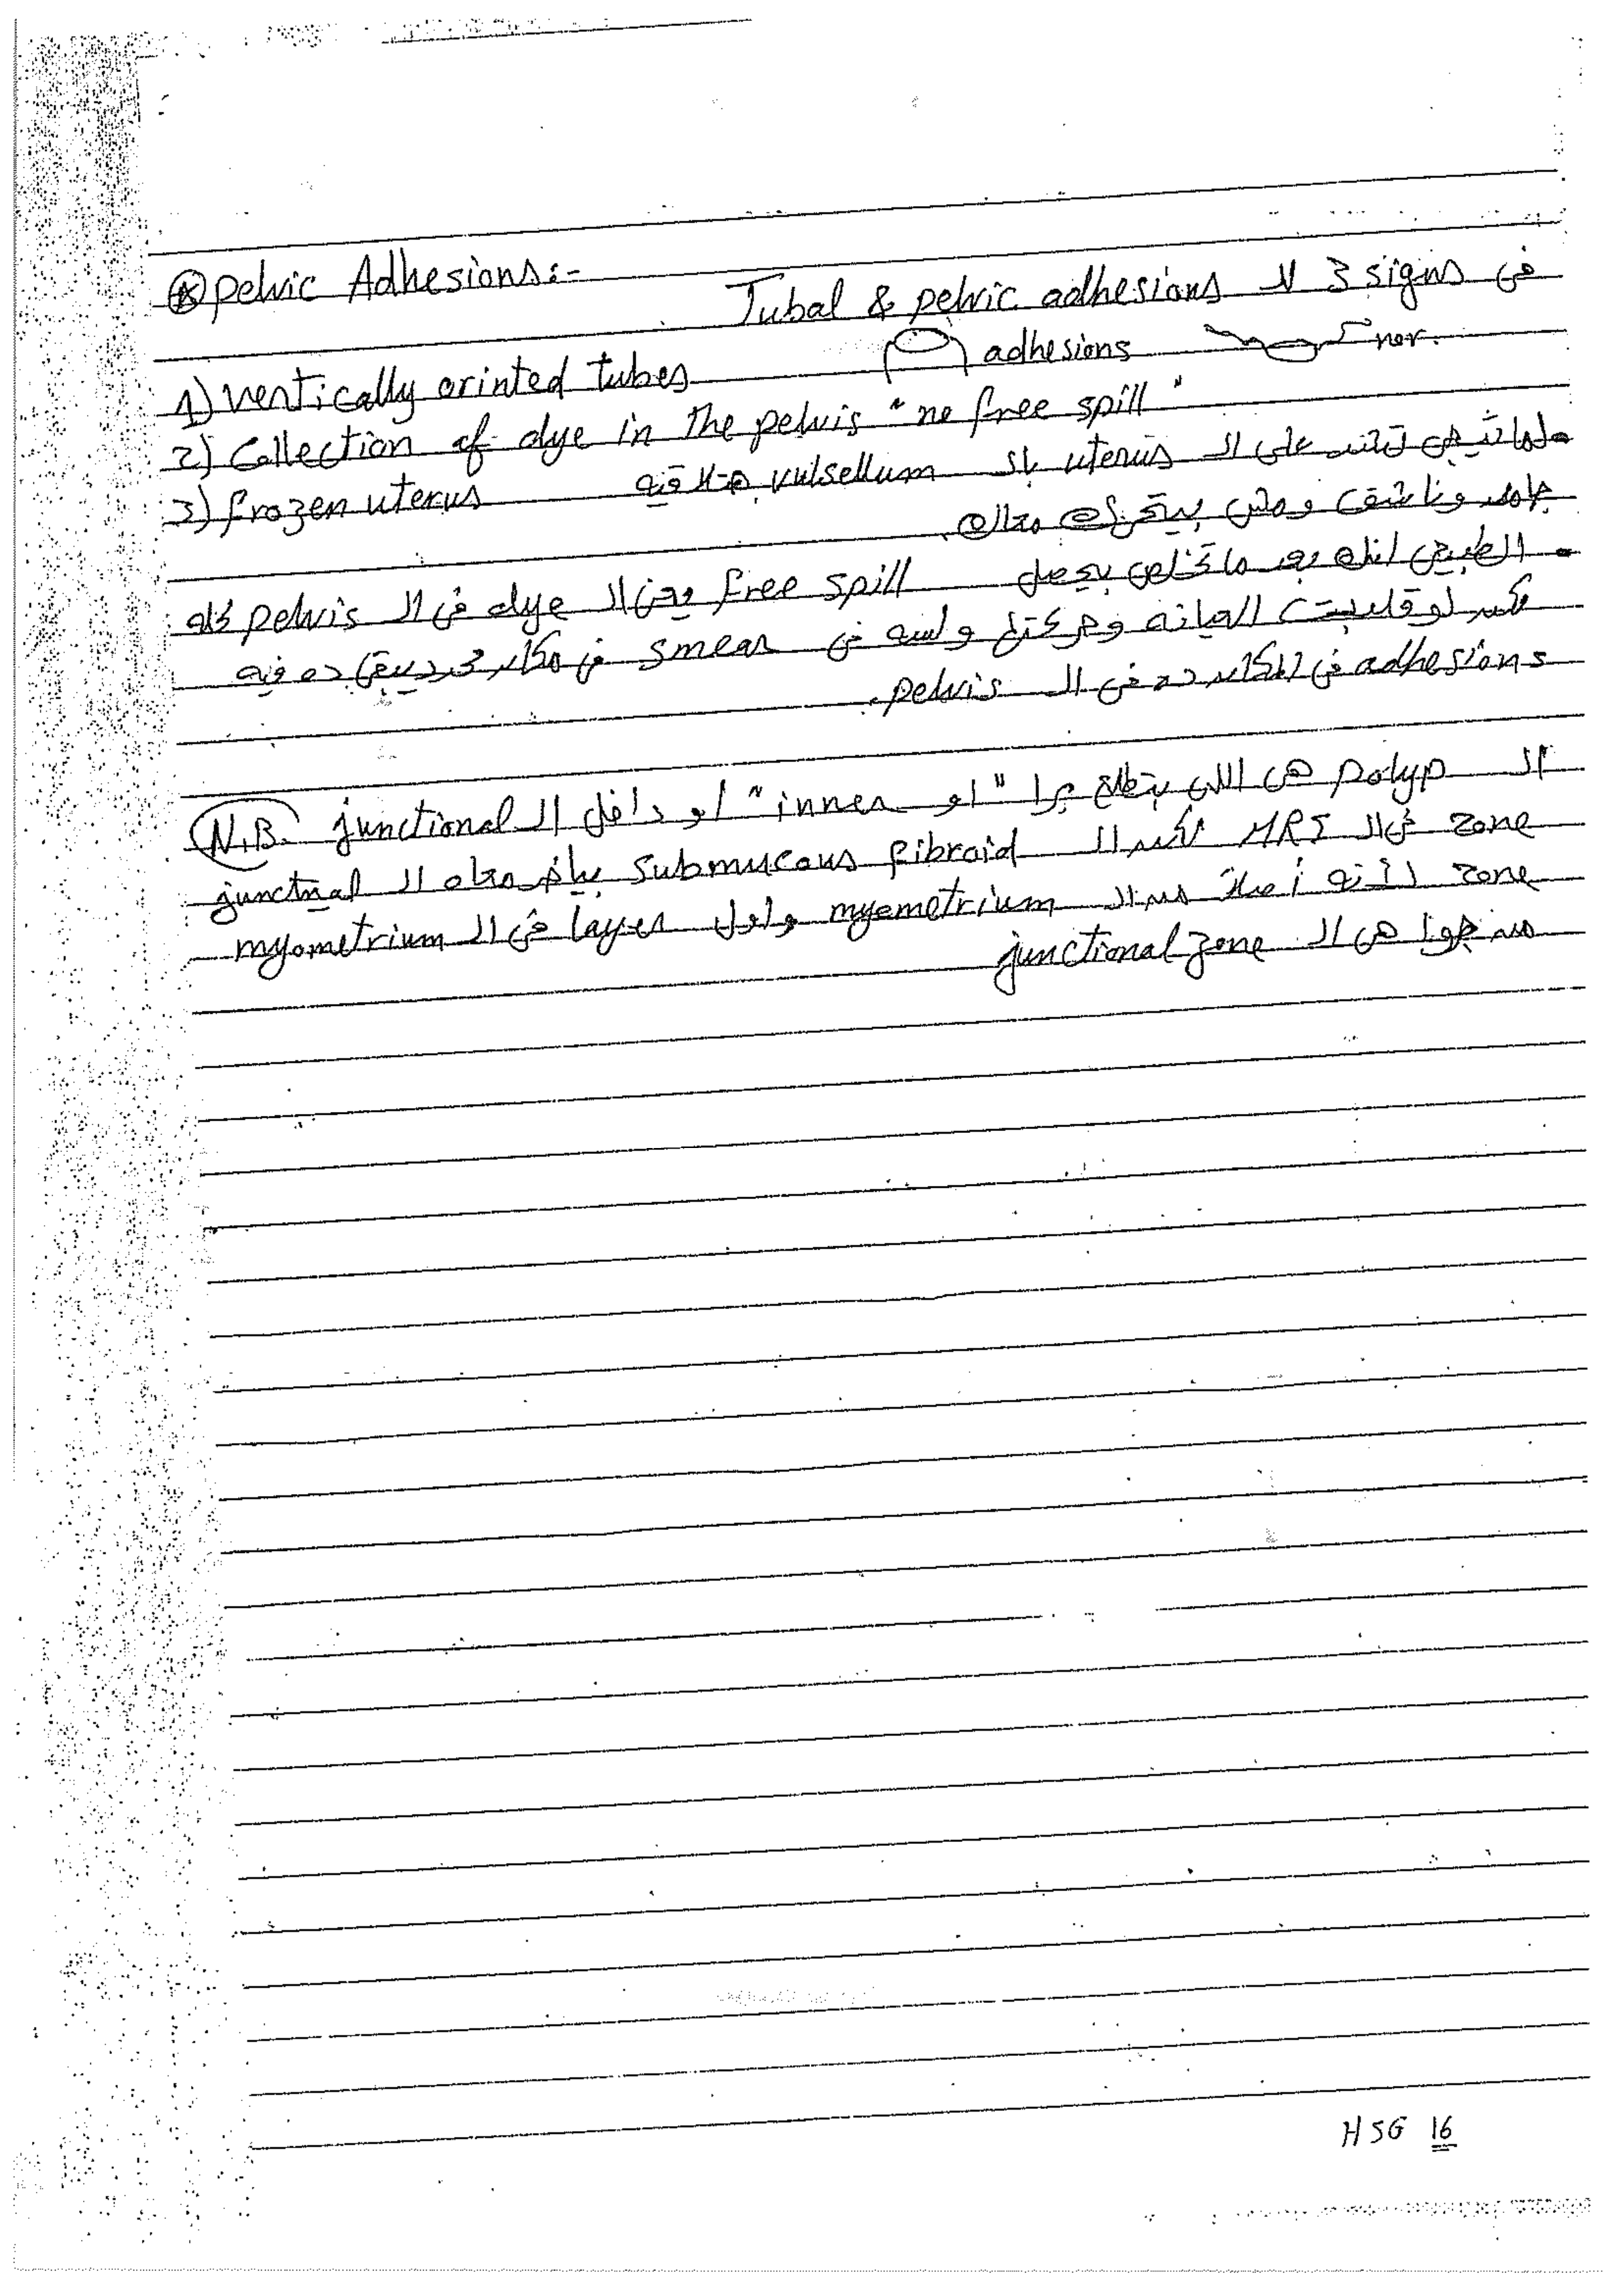 ⊛ pelvic Adhesions:-
فى 3 signs لا Tubal & pelvic adhesions
1) vertically orinted tubes adhesions nor.
2) Collection of dye in the pelvis "no free spill"
3) frozen uterus
تشد على الـ uterus بالـ vulsellum هتلاقيه
جامد وناشف ومش بيتحرك معاك.
- الطبيعى انك بعد ما تخلص يحصل free spill ويبقى الـ dye فى الـ pelvis كله
لكن لو قلبت العيانه وحركتها ولسه فى smear فى مكان محدد يبقى ده فيه
adhesions فى المكان ده فى الـ pelvis.
N.B. الـ polyp هى اللى بتطلع برا "او inner" او داخل الـ junctional
zone فى الـ MRI لكن الـ submucous fibroid بياخد معاه الـ junctnal
zone لأنه أصلاً من الـ myometrium واول layer فى الـ myometrium
من جوا هى الـ junctional zone
HSG 16